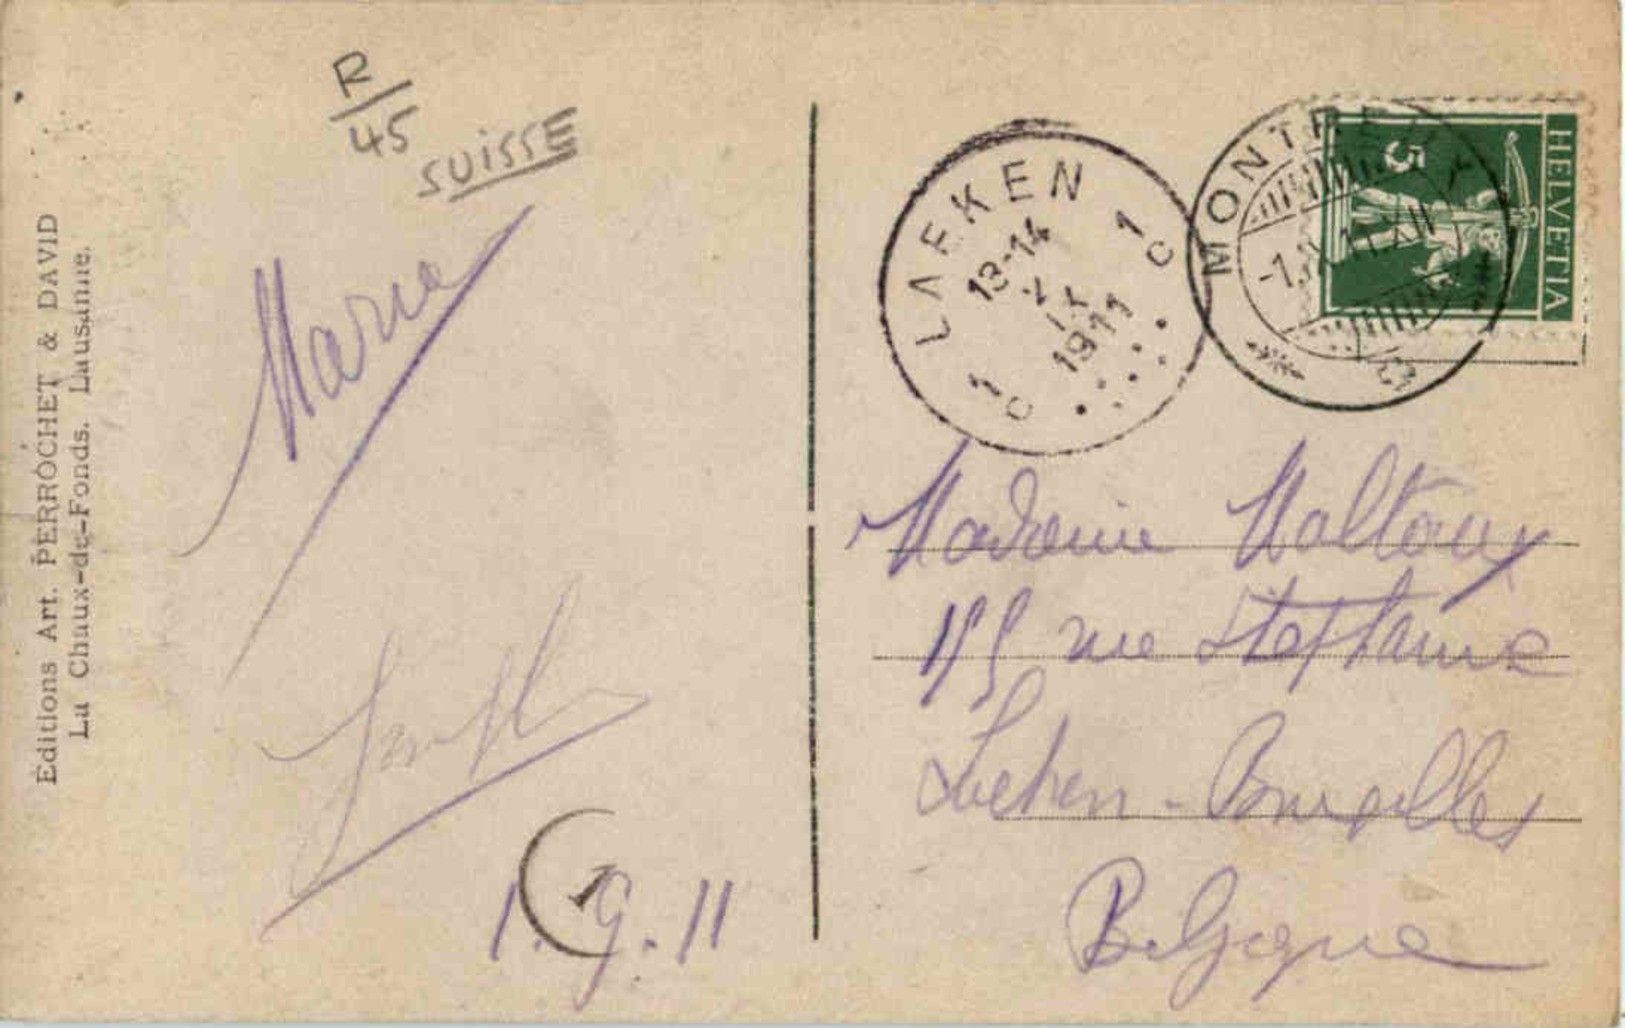 R/45
SUISSE
Editions Art. PERROCHET & DAVID
La Chaux-de-Fonds. Lausanne.
Marie
1.9.11
1
LAEKEN
13-14
2 IX
1911
1C 1C
MONTREUX
HELVETIA
5
Madame
155 rue Stephanie
Laeken - Bruxelles
Belgique